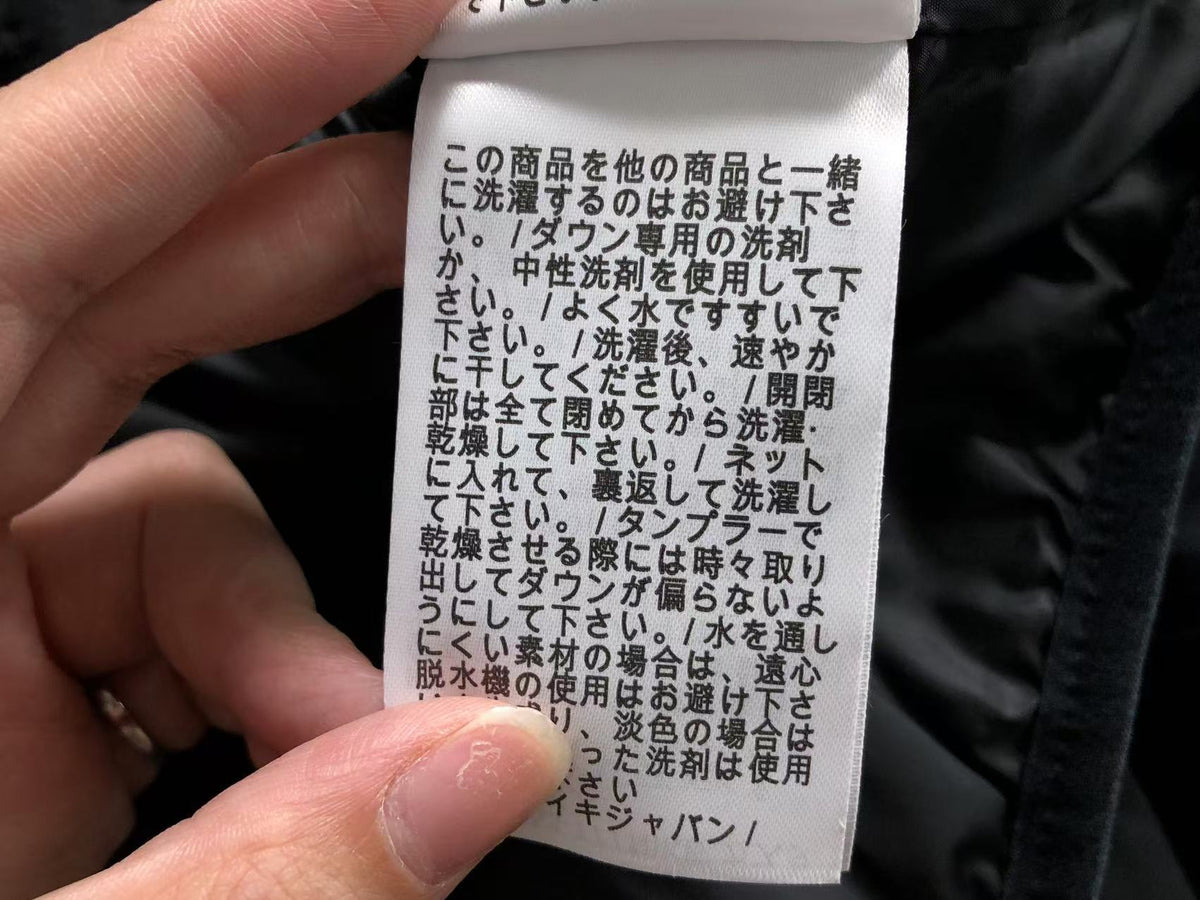 この商品を他の商品と一緒
に洗濯するのはお避け下さ
い。/ダウン専用の洗剤
か、中性洗剤を使用して下
さい。/よく水ですすいで
下さい。/洗濯後、速やか
に干してください。/開閉
部は全て閉めてから洗濯·
乾燥して下さい。/ネット
に入れて、裏返して洗濯し
て下さい。/タンブラーで
乾燥させる際には時々取り
出してダウンが偏らないよ
うにして下さい。/水を通し
にくい素材の場合は、遠心
脱水機の使用はお避け下さ
り、淡色の場合は
った洗剤は使用
さい
イキジャパン/